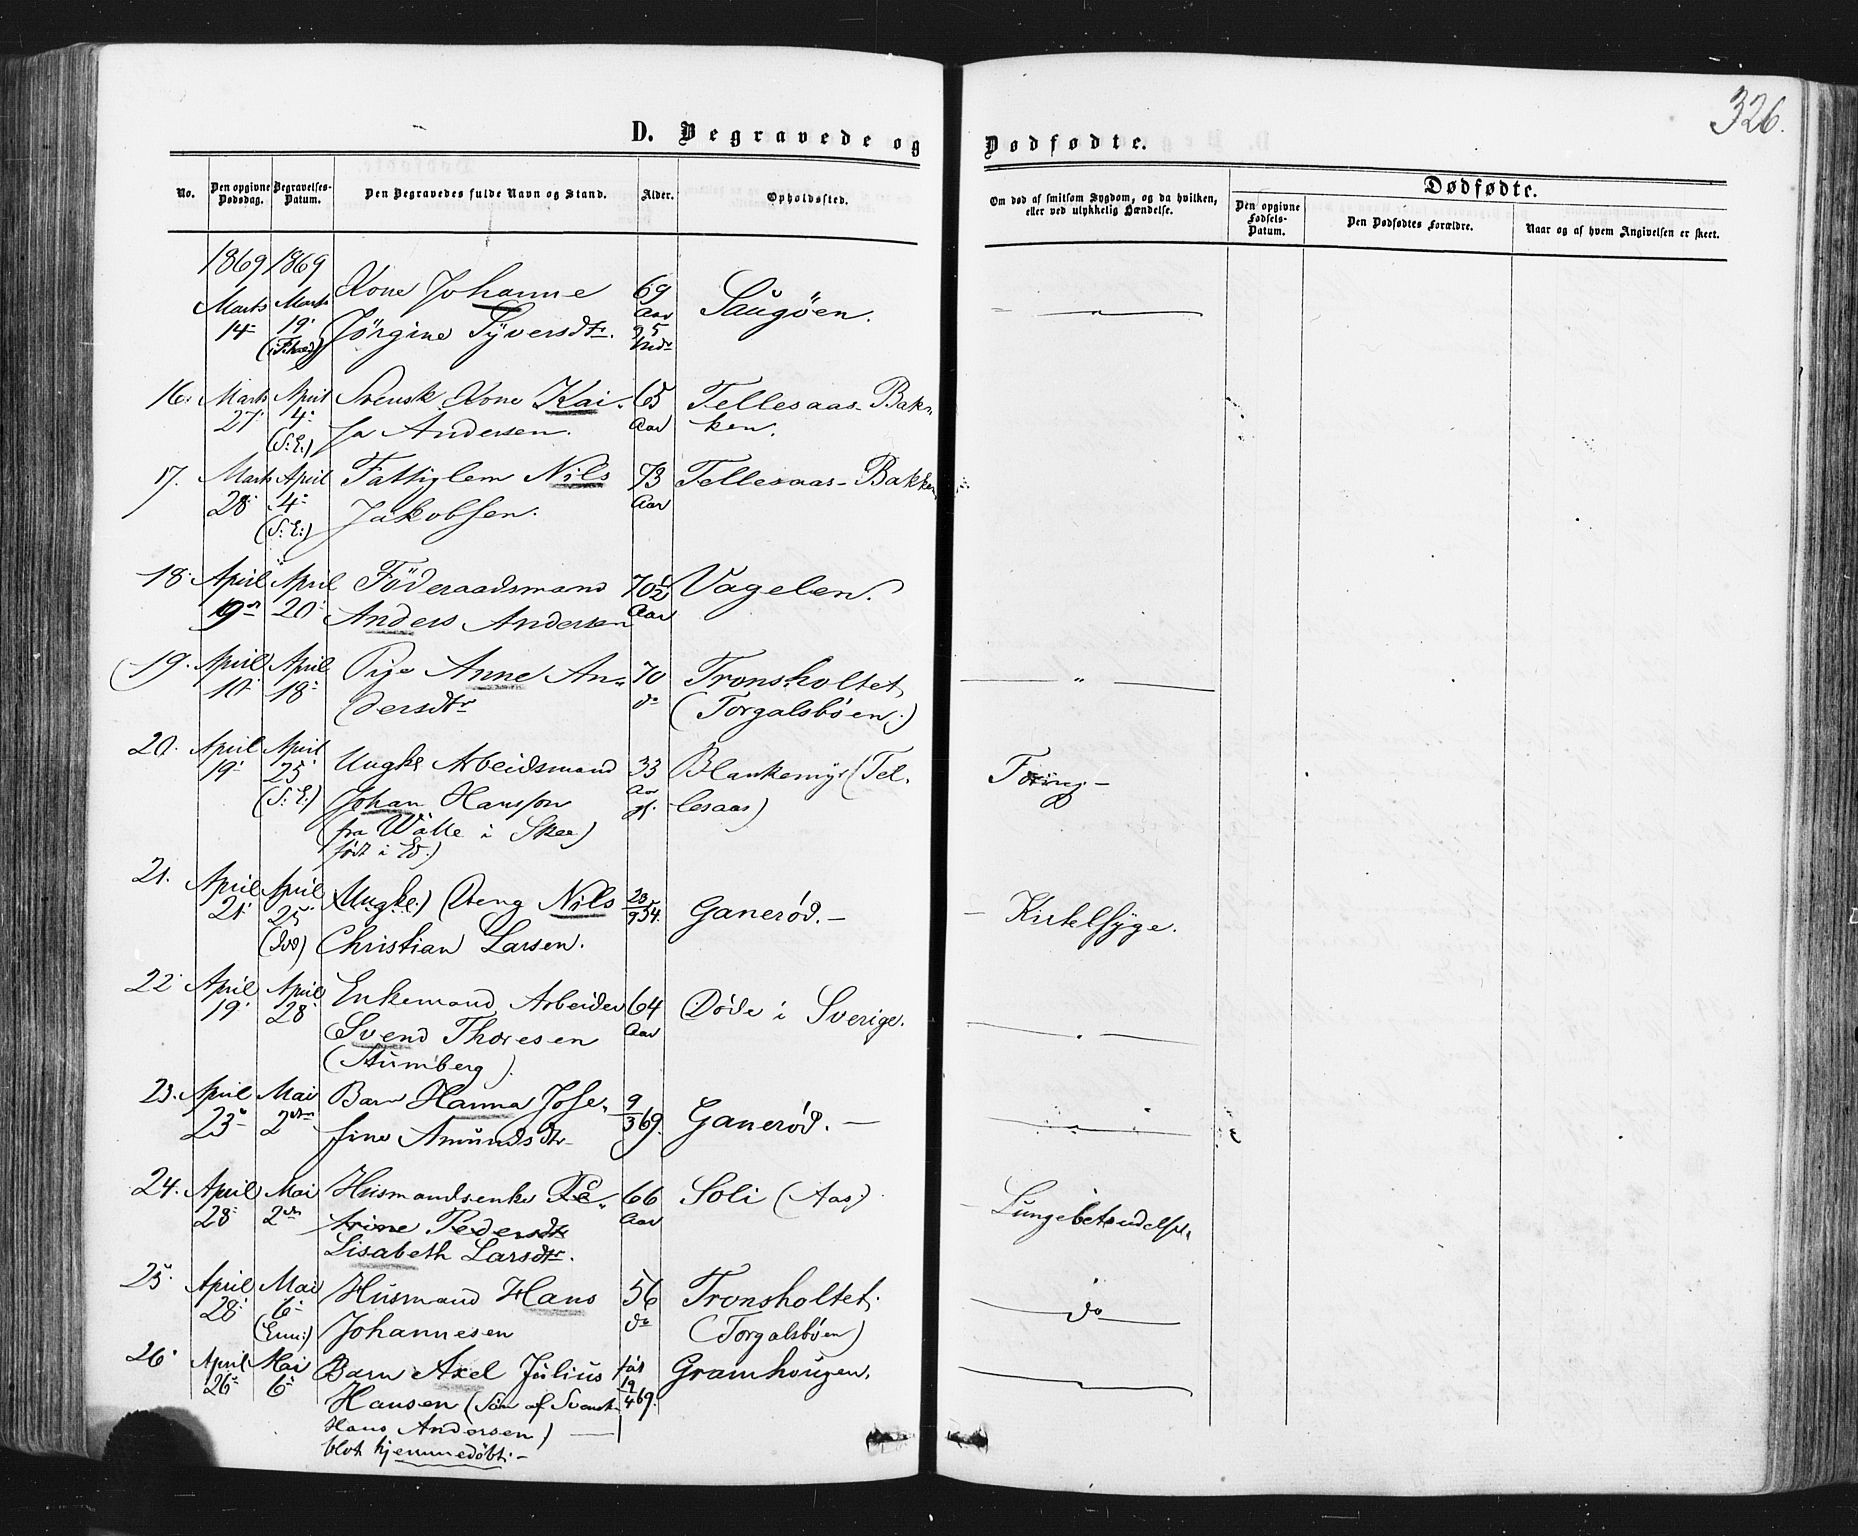 326.
D. Begravede og Dødfødte.
No. Den opgivne Dødsdag. Begravelses-Datum. Den Begravedes fulde Navn og Stand. Alder. Opholdssted. Om død af smitsom Sygdom, og da hvilken, eller ved ulykkelig Hændelse. Dødfødte.
Den opgivne Fødsels-Datum. Den Dødfødtes Forældre. Naar og af hvem Angivelsen er skeet.
1869 1869
Marts Marts Kone Johanne 69 Saugöen.
14 19 Jörgine Syversdtr. Aar
16. Marts April Svensk Kone Kai- 65 Tellesaas-Bak-
27 4 (S:E:) ja Andersen. Aar ken.
17. Marts April Fattiglem Nils 73 Tellesaas-Bakken
28 4 (S:E:) Jakobsen. Aar
18. April April Föderaadsmand 70½ Vagelen.
19 20 Anders Andersen Aar
19. April April Pige Anne An- 70 Tronsholtet
10 18 dersdtr do (Torgalsböen.)
20. April April Ungk: Arbeidsmand 33 Blankemyr (Tel-
19 25 (S:E:) Johan Hansson Aar lesaas)
(fra Wälle i Skee)
født i Ed.)
21. April April (Ungk:) Dreng Nils 23/9 54. Ganerød. — Kirtelsyge.
21 25 Christian Larsen.
22 April April Enkemand Arbeider 64 Døde i Sverige.
19 28 Svend Thoresen Aar
23. April Mai Barn Hanna Jose- 9/3 69. Ganerød. —
23 2den fine Amundsdtr
24. April Mai Husmandsenke Pe- 66 Soli (Aas) Lungebetændelse.
28 2den trine Pedersdtr Aar
Lisabeth Larsdtr.
25. April Mai Husmand Hans 56 Tronsholtet do
28 6 Johannesen do (Torgalsböen)
26 April Mai Barn Axel Julius Gramhougen.
26 6 Hansen (Søn af Svensk 19/4 69.
Hans Andersen) —
blot hjemmedøbt. —